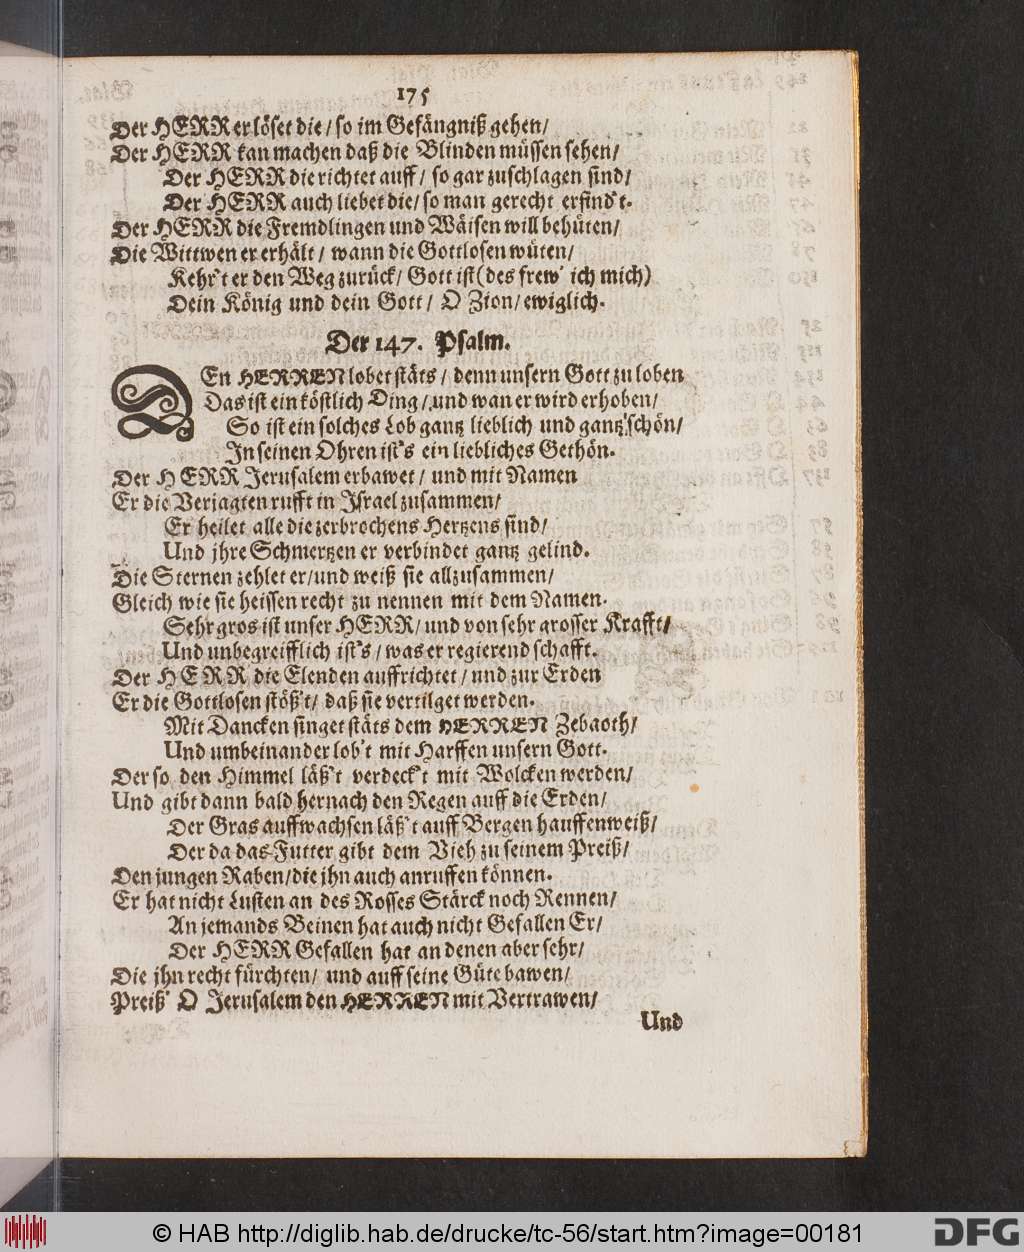 175
Der HERR erlöset die / so im Gefängniß gehen /
Der HERR kan machen daß die Blinden müssen sehen /
Der HERR die richtet auff / so gar zuschlagen sind /
Der HERR auch liebet die / so man gerecht erfind't.
Der HERR die Fremdlingen und Wäisen will behüten /
Die Wittwen er erhält / wann die Gottlosen wüten /
Kehr't er den Weg zurück / Gott ist (des frew' ich mich)
Dein König und dein Gott / O Zion / ewiglich.
Der 147. Psalm.
DEn HERREN lobet stäts / denn unsern Gott zu loben
Das ist ein köstlich Ding / und wan er wird erhoben /
So ist ein solches Lob gantz lieblich und gantz schön /
In seinen Ohren ist's ein liebliches Gethön.
Der HERR Jerusalem erbawet / und mit Namen
Er die Verjagten rufft in Israel zusammen /
Er heilet alle die zerbrochens Hertzens sind /
Und jhre Schmertzen er verbindet gantz gelind.
Die Sternen zehlet er / und weiß sie allzusammen /
Gleich wie sie heissen recht zu nennen mit dem Namen.
Sehr gros ist unser HERR / und von sehr grosser Krafft /
Und unbegreifflich ist's / was er regierend schafft.
Der HERR die Elenden auffrichtet / und zur Erden
Er die Gottlosen stöß't / daß sie vertilget werden.
Mit Dancken singet stäts dem HERREN Zebaoth /
Und umbeinander lob't mit Harffen unsern Gott.
Der so den Himmel läß't verdeck't mit Wolcken werden /
Und gibt dann bald hernach den Regen auff die Erden /
Der Gras auffwachsen läß't auff Bergen hauffenweiß /
Der da das Futter gibt dem Vieh zu seinem Preiß /
Den jungen Raben / die jhn auch anruffen können.
Er hat nicht Lusten an des Rosses Stärck noch Rennen /
An jemands Beinen hat auch nicht Gefallen Er /
Der HERR Gefallen hat an denen aber sehr /
Die jhn recht fürchten / und auff seine Güte bawen /
Preiß' O Jerusalem den HERREN mit Vertrawen /
Und
© HAB http://diglib.hab.de/drucke/tc-56/start.htm?image=00181
DFG